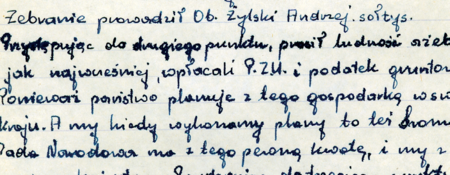 Zebranie prowadził Ob. Żylski Andrzej sołtys.
Przystępując do drugiego punktu, prosił ludności ażeb
jak najwcześniej wpłacali P.Z.U. i podatek grunto
Ponieważ państwo planuje z tego gospodarką w sw
kraju. A my kiedy wykonamy plany to też Grom
Rada Narodowa ma z tego pewną kwotę, i my z